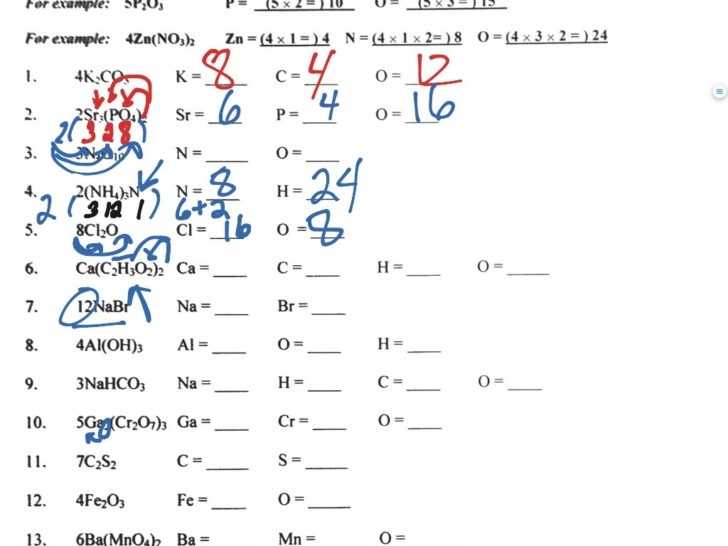 For example: 5P₂O₃ P = (5 x 2 = ) 10 O = (5 x 3 = ) 15
For example: 4Zn(NO₃)₂ Zn = (4 x 1 = ) 4 N = (4 x 1 x 2= ) 8 O = (4 x 3 x 2 = ) 24
1. 4K₂CO₃ K = 8 C = 4 O = 12
2. 2Sr₃(PO₄)₂ Sr = 6 P = 4 O = 16
2( 3 2 8 )
3. N = ____ O = ____
4. 2(NH₄)₃N N = 8 H = 24
2 ( 3 12 1 ) 6+2
5. 8Cl₂O Cl = 16 O = 8
6. Ca(C₂H₃O₂)₂ Ca = ____ C = ____ H = ____ O = ____
7. 12NaBr Na = ____ Br = ____
8. 4Al(OH)₃ Al = ____ O = ____ H = ____
9. 3NaHCO₃ Na = ____ H = ____ C = ____ O = ____
10. 5Ga₂(Cr₂O₇)₃ Ga = ____ Cr = ____ O = ____
11. 7C₂S₂ C = ____ S = ____
12. 4Fe₂O₃ Fe = ____ O = ____
13. 6Ba(MnO₄)₂ Ba = Mn = O =